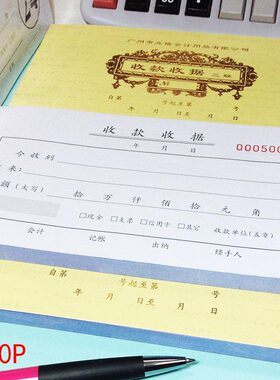 广州市兆信会计用品有限公司
收款收据 三联
自第 号起至第 号
年 月 日至 月 日
收款收据
年 月 日 000500
今收到
来：
额（大写） 拾 万 仟 佰 拾 元 角
□现金 □支票 □信用卡 □其它 收款单位（盖章）
会计 记帐 出纳 经手人
自第 号起至第 号
年 月 日至 月 日
0P